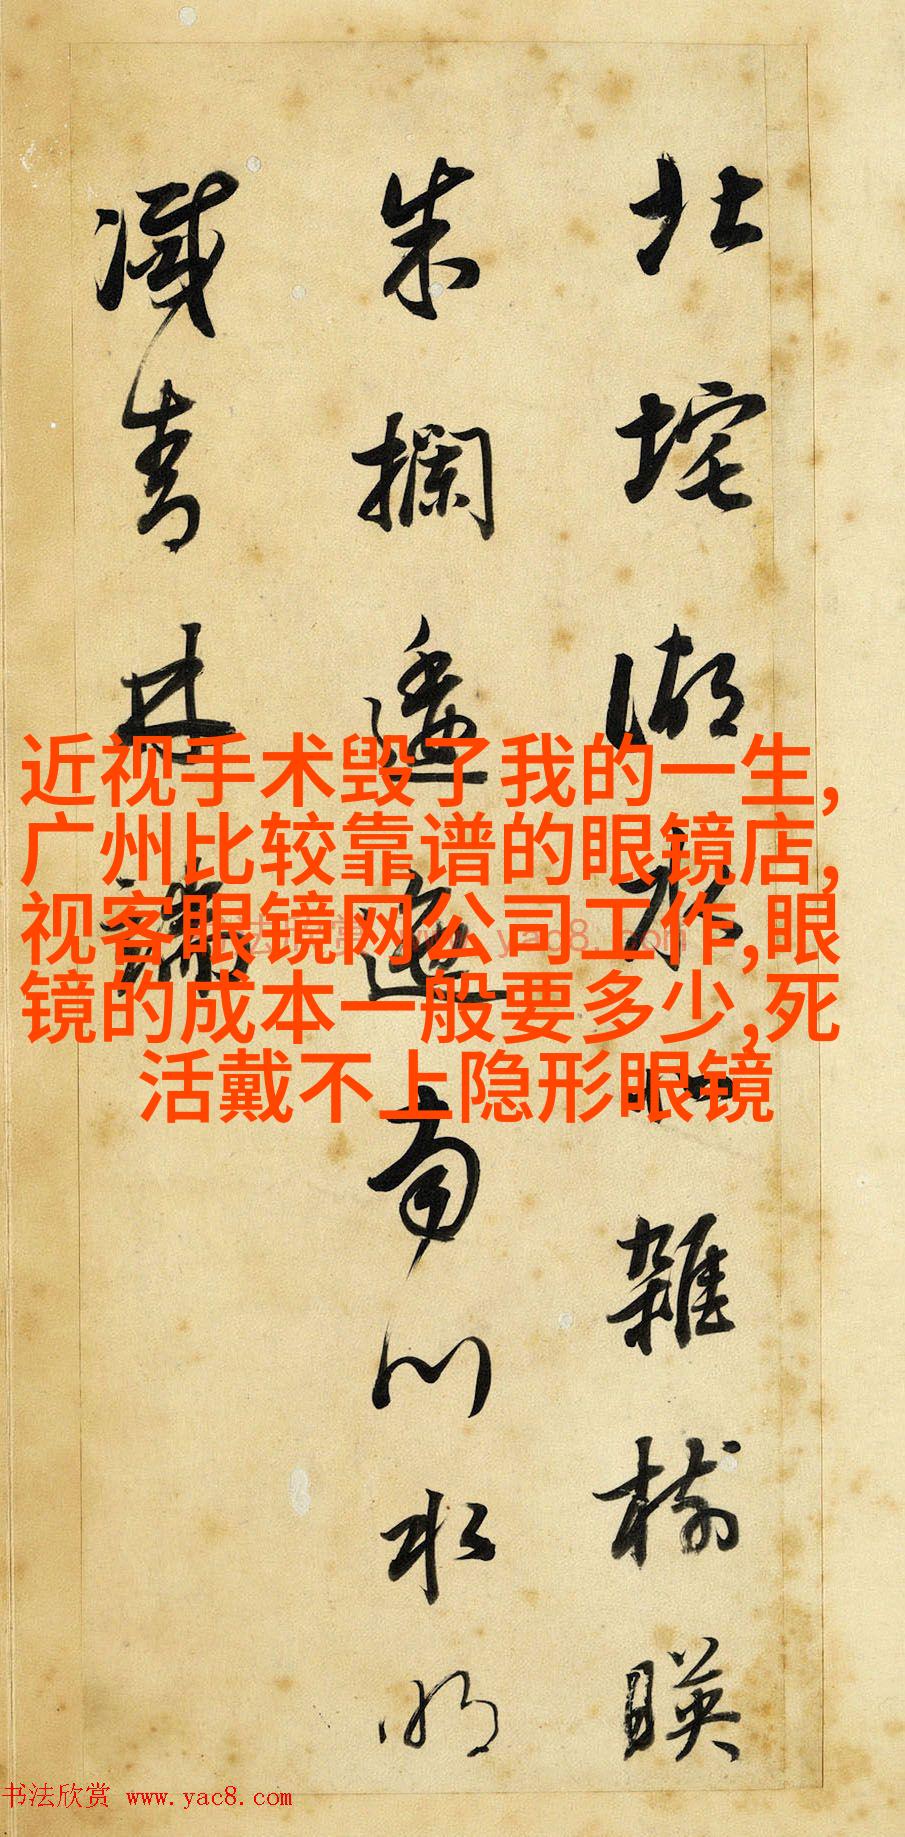 北垞湖水北雜樹映
朱攔逶迤南川水明
滅青林端
近视手术毁了我的一生,
广州比较靠谱的眼镜店,
视客眼镜网公司工作,眼
镜的成本一般要多少,死
活戴不上隐形眼镜
书法欣赏 www.yac8.com
书法欣赏 www.yac8.com